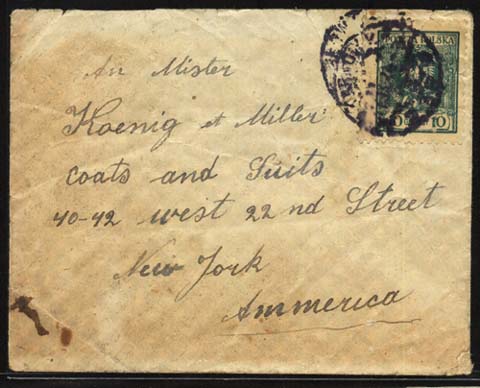 POCZTA POLSKA
10 10
An Mister
Koenig et Miller
coats and Suits
40-42 west 22 nd Street
New York
Ammerica